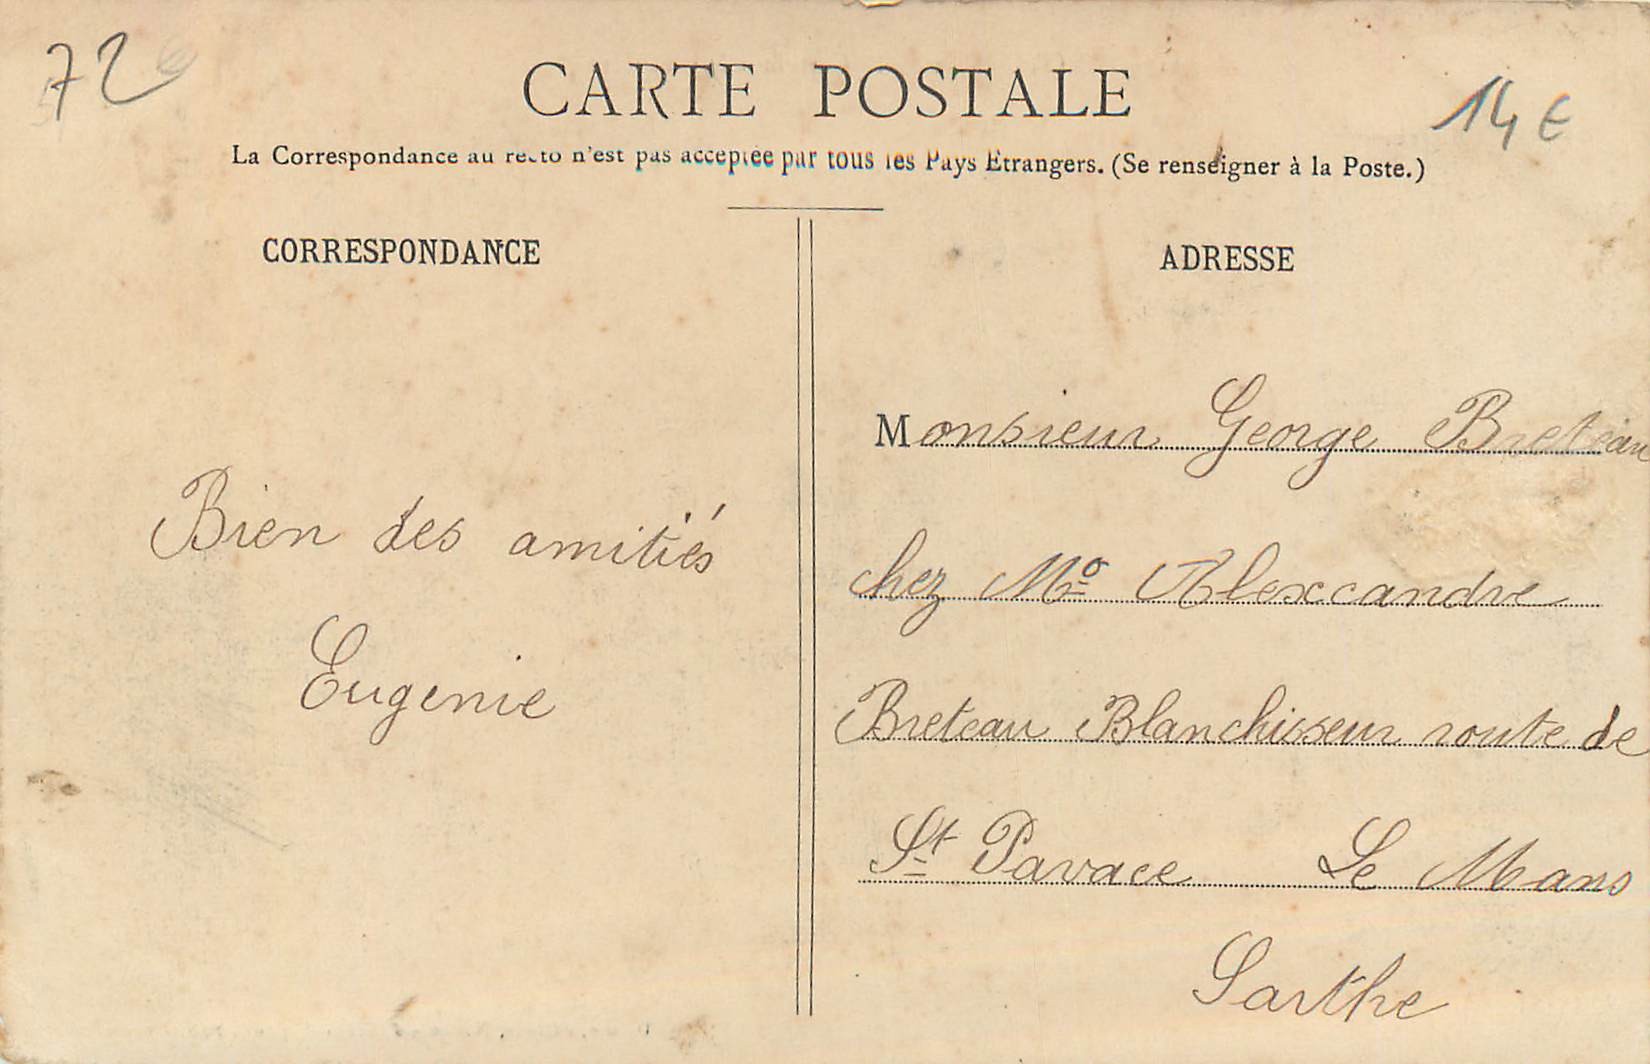 72
14 €
CARTE POSTALE
La Correspondance au recto n'est pas acceptée par tous les Pays Etrangers. (Se renseigner à la Poste.)
CORRESPONDANCE
Bien des amitiés
Eugenie
ADRESSE
Monsieur George Breteau
chez Mo Alexcandre
Breteau Blanchisseur route de
St Pavace Le Mans
Sarthe